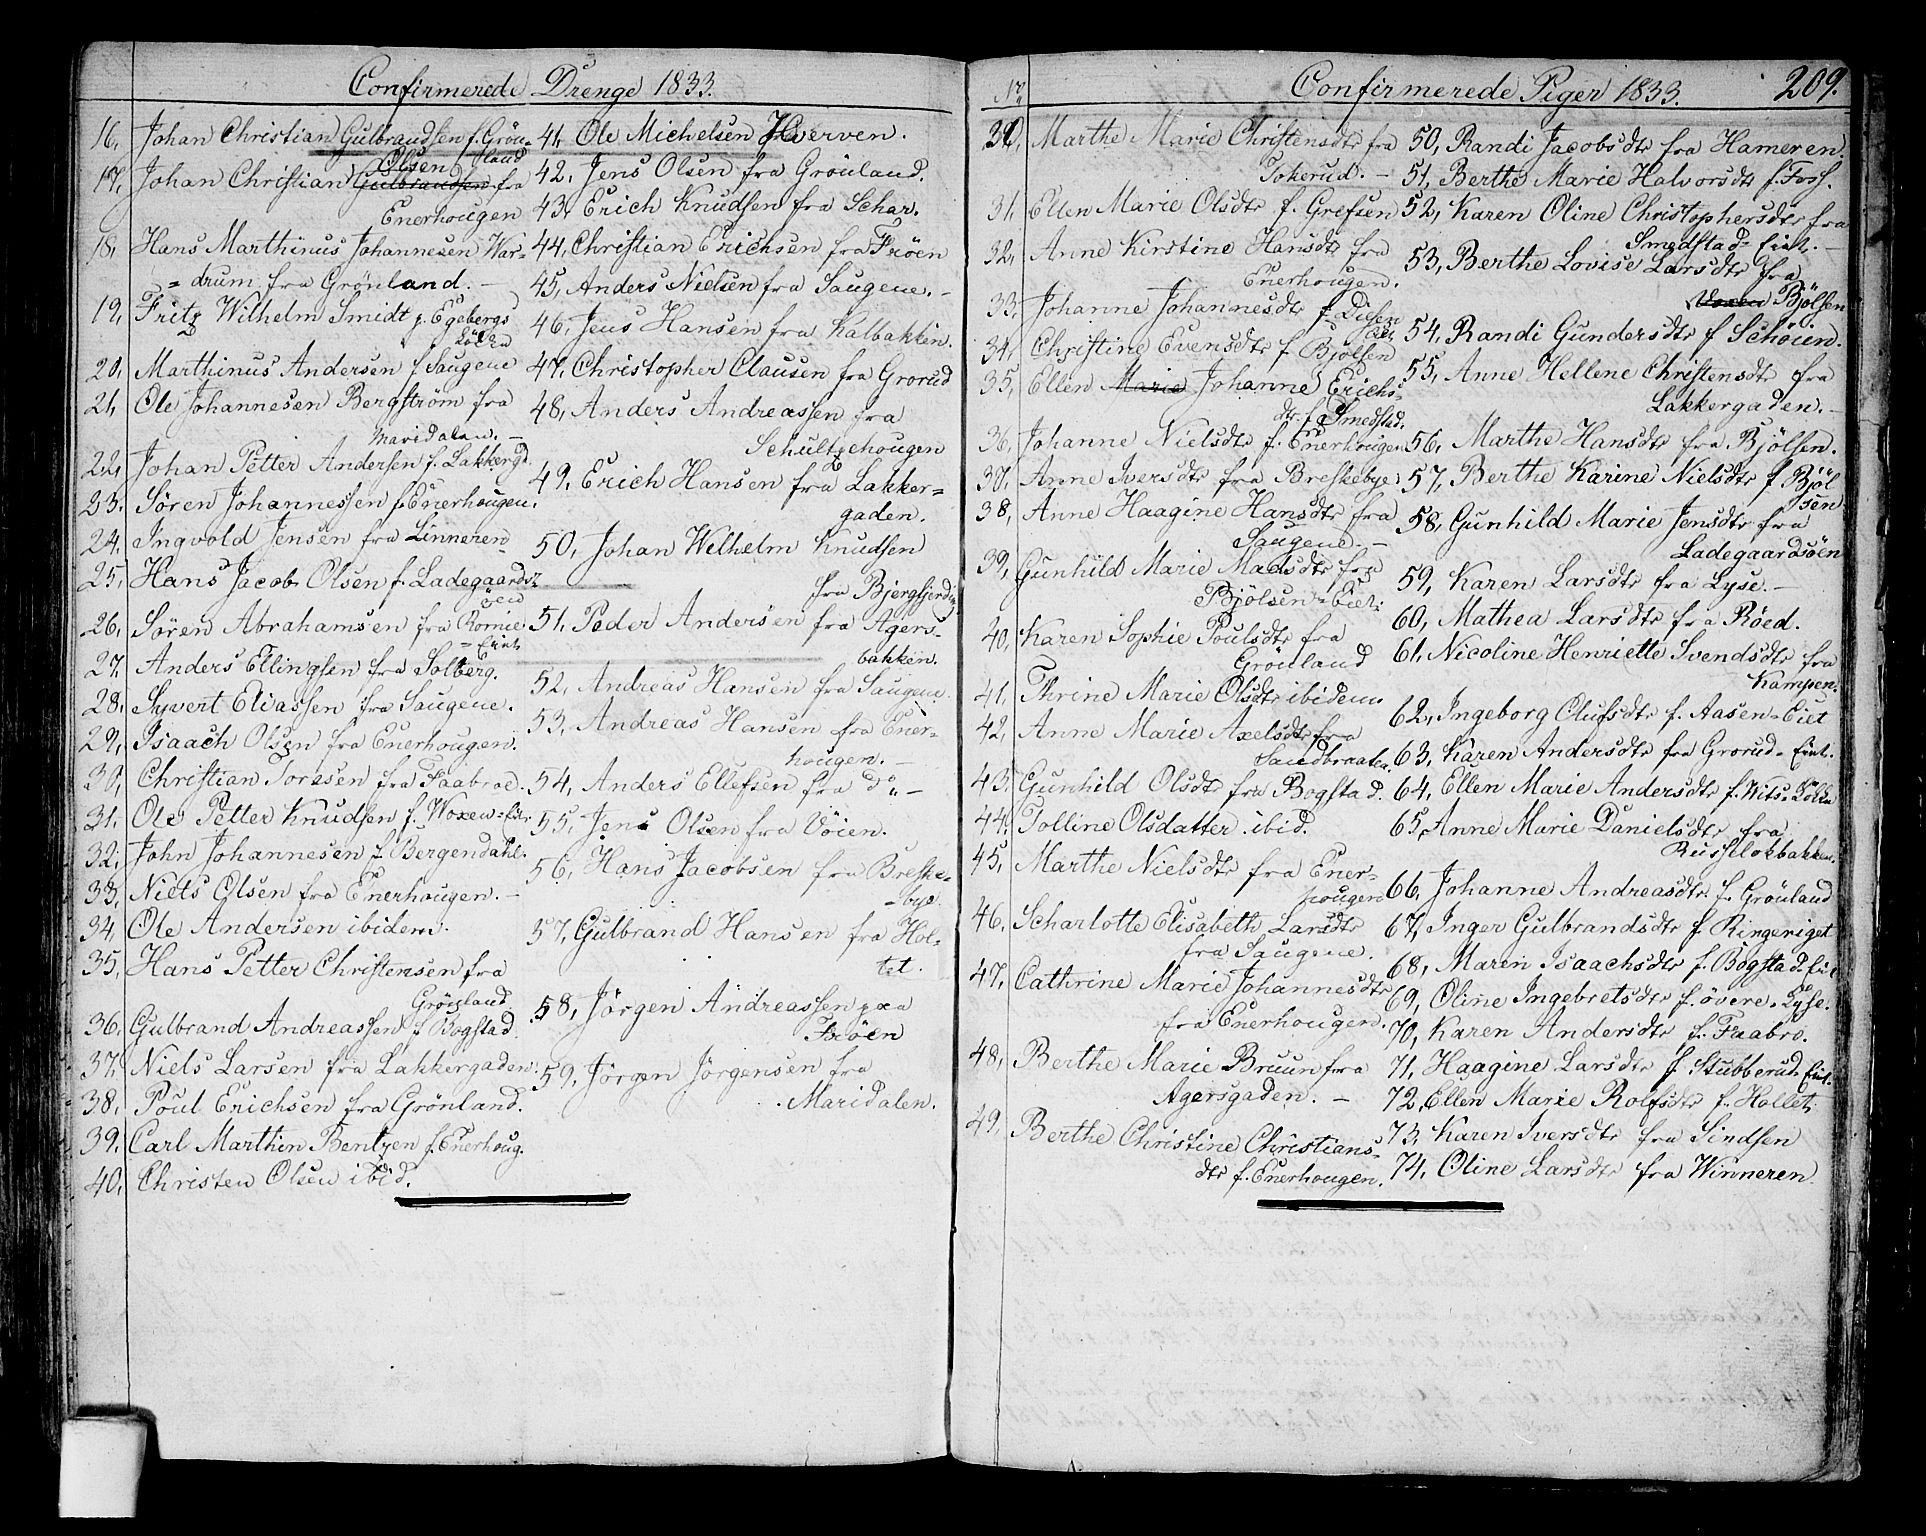 Confirmerede Drenge 1833.
16, Johan Christian Gulbrandsen f. Grön-
land
17, Johan Christian Olsen Gulbrandsen fra
Enerhougen
18, Hans Marthinus Johannesen War-
=drum fra Grönland. -
19, Fritz Wilhelm Smidt p. Egebergs
Löcka
20, Marthinus Andersen f. Saugene
21, Ole Johannesen Bergström fra
Maridalen. -
22, Johan Petter Andersen f. Lakkergd.
23. Sören Johannessen f. Enerhougen.
24. Ingvold Jensen fra Linneren
25, Hans Jacob Olsen f. Ladegaards-
öen
26, Sören Abrahamsen fra Romie
=Eiet
27, Anders Ellingsen fra Solberg.
28, Syvert Eliassen fra Saugene.
29, Isaach Olsen fra Enerhougen.
30, Christian Toresen fra Faabroe.
31, Ole Petter Knudsen f. Woxen=Eie.
32, John Johannesen f. Bergendahl.
33, Niels Olsen fra Enerhougen. -
34, Ole Andersen ibidem.
35, Hans Petter Christensen fra
Grönland
36. Gulbrand Andreassen f Bogstad.
37. Niels Larsen fra Lakkergaden.
38. Poul Erichsen fra Grönland.
39. Carl Marthin Bentzen f. Enerhoug.
40, Christen Olsen ibid.
41, Ole Michelsen Hverven.
42, Jens Olsen fra Grönland.
43, Erich Knudsen fra Schar.
44, Christian Erichsen fra Fröen
45, Anders Nielsen fra Saugene. -
46, Jens Hansen fra Kalbakken.
47, Christopher Clausen fra Grorud
48, Anders Andreassen fra
Schultzehougen
49, Erich Hansen fra Lakker=
gaden.
50, Johan Welhelm Knudsen
fra Bjergfjerdin
51, Peder Andersen fra Agers-
bakken.
52, Andreas Hansen fra Saugene.
53, Andreas Hansen fra Ener-
hougen. -
54, Anders Ellefsen fra do -
55, Jens Olsen fra Vöien.
56, Hans Jacobsen fra Breske-
-bye.
57, Gulbrand Hansen fra Hol-
tet.
58, Jörgen Andreassen paa
Fröen
59, Jörgen Jörgensen fra
Maridalen.
No
Confirmerede Piger 1833.
209.
30, Marthe Marie Christensdtr fra
Tokerud. -
31, Ellen Marie Olsdtr f. Grefsen
32, Anne Kirstine Hansdtr fra
Enerhougen.
33, Johanne Johannesdtr f. Disen
34, Christine Evensdtr f Bjölsen
35, Ellen Marie Johanne Erichs-
dtr. fra Smedstad.
36, Johanne Nielsdtr f. Enerhougen
37, Anne Iversdtr fra Breskebye
38, Anne Haagine Hansdtr fra
Saugene. -
39, Gunhild Marie Madsdtr fra
Bjölsen=Eiet.
40, Karen Sophie Poulsdtr fra
Grönland
41, Thrine Marie Olsdtr ibidem
42, Anne Marie Axelsdtr fra
Sandbraaten.
43. Gunhild Olsdtr fra Bogstad.
44. Tolline Olsdatter ibid.
45, Marthe Nielsdtr fra Ener-
hougen
46, Scharlotte Elisabeth Larsdtr
fra Saugene.
47, Cathrine Marie Johannesdtr
fra Enerhougen.
48, Berthe Marie Bruun fra
Agersgaden. -
49, Berthe Christine Christians-
dtr f. Enerhougen.
50, Randi Jacobsdtr fra Hameren.
51, Berthe Marie Halvorsdtr f. Foss.
52, Karen Oline Christophersdtr fra
Smedstad=Eiet. -
53, Berthe Lovise Larsdtr fra
Voxen Bjölsen
54, Randi Gundersdtr f Schöien.
55, Anne Hellene Christensdtr fra
Lakkergaden. -
56, Marthe Hansdtr fra Bjölsen.
57, Berthe Karine Nielsdtr f Bjöl
sen
58, Gunhild Marie Jensdtr fra
Ladegaardsöen
59, Karen Larsdtr fra Lyse. -
60, Mathea Larsdtr fra Röed.
61, Nicoline Henriette Svendsdtr fra
Kampen.
62, Ingeborg Olufsdtr f. Aasen=Eiet
63, Karen Andersdtr fra Grorud=Eiet.
64, Ellen Marie Andersdtr f. Wits=Lökke
65, Anne Marie Danielsdtr fra
Russelökbakken.
66, Johanne Andreasdtr f. Grönland
67, Inger Gulbrandsdtr f. Ringeriget
68, Maren Isaachsdtr f. Bogstad=Eiet
69, Oline Ingebretsdtr f. övere=Lyse.
70, Karen Andersdtr f. Faabro.
71, Haagine Larsdtr f Stubberud=Eiet.
72, Ellen Marie Rolfsdtr f. Holtet.
73, Karen Iversdtr fra Sindsen
74, Oline Larsdtr fra Winneren